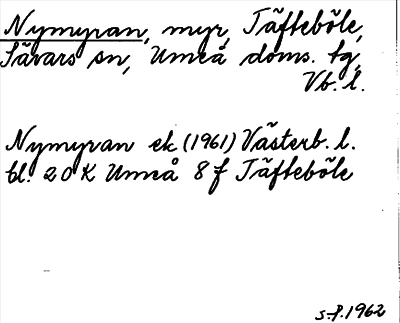 Nymyran, myr, Täfteböle,
Sävars sn, Umeå doms. tg,
Vb. l.
Nymyran ek (1961) Västerb. l.
bl. 20 K Umeå 8 f Täfteböle
1962